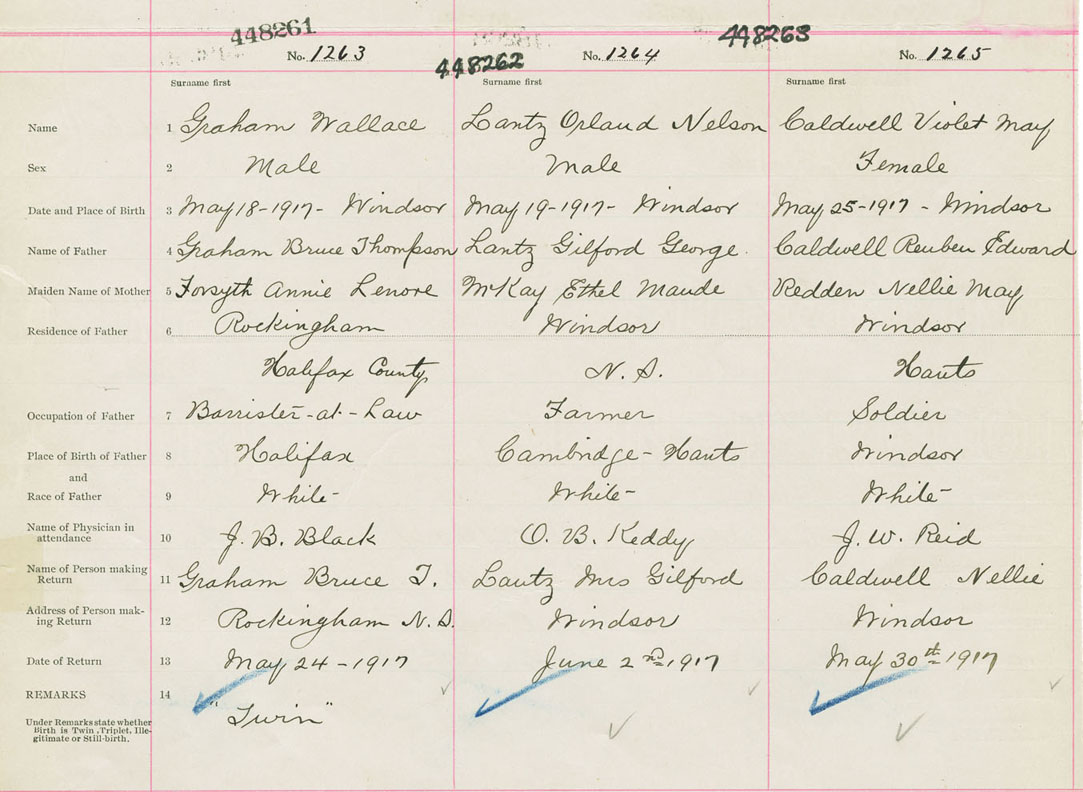 448261 448263
No. 1263 448262 No. 1264 No. 1265
Surname first Surname first Surname first
Name 1 Graham Wallace Lantz Orland Nelson Caldwell Violet May
Sex 2 Male Male Female
Date and Place of Birth 3 May 18-1917- Windsor May 19-1917- Windsor May 25-1917 - Windsor
Name of Father 4 Graham Bruce Thompson Lantz Gilford George. Caldwell Reuben Edward
Maiden Name of Mother 5 Forsyth Annie Lenore McKay Ethel Maude Redden Nellie May
Residence of Father 6 Rockingham Windsor Windsor
Halifax County N.S. Hants
Occupation of Father 7 Barrister-at-Law Farmer Soldier
Place of Birth of Father 8 Halifax Cambridge-Hants Windsor
and
Race of Father 9 White- White- White-
Name of Physician in
attendance 10 J. B. Black O. B. Keddy J. W. Reid
Name of Person making
Return 11 Graham Bruce T. Lantz Mrs Gilford Caldwell Nellie
Address of Person mak-
ing Return 12 Rockingham N.S. Windsor Windsor
Date of Return 13 May 24-1917 June 2nd 1917 May 30th 1917
REMARKS 14
"Twin"
Under Remarks state whether
Birth is Twin, Triplet, Ille-
gitimate or Still-birth.